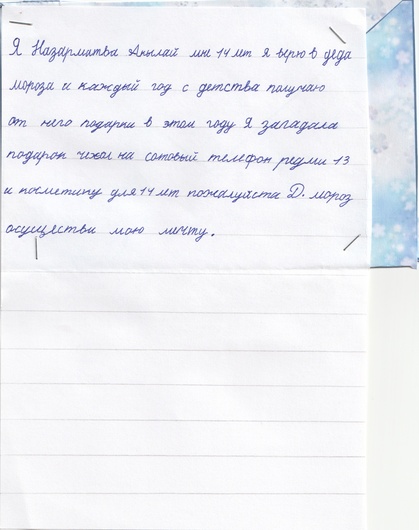 Я Назарматва Акылай мне 14 лет я верю в деда
мороза и каждый год с детства получаю
от него подарки в этом году Я загадала
подарок чехол на сотовый телефон редми 13
и косметику для 14 лет пожалуйста Д. мороз
осуществи мою мечту.